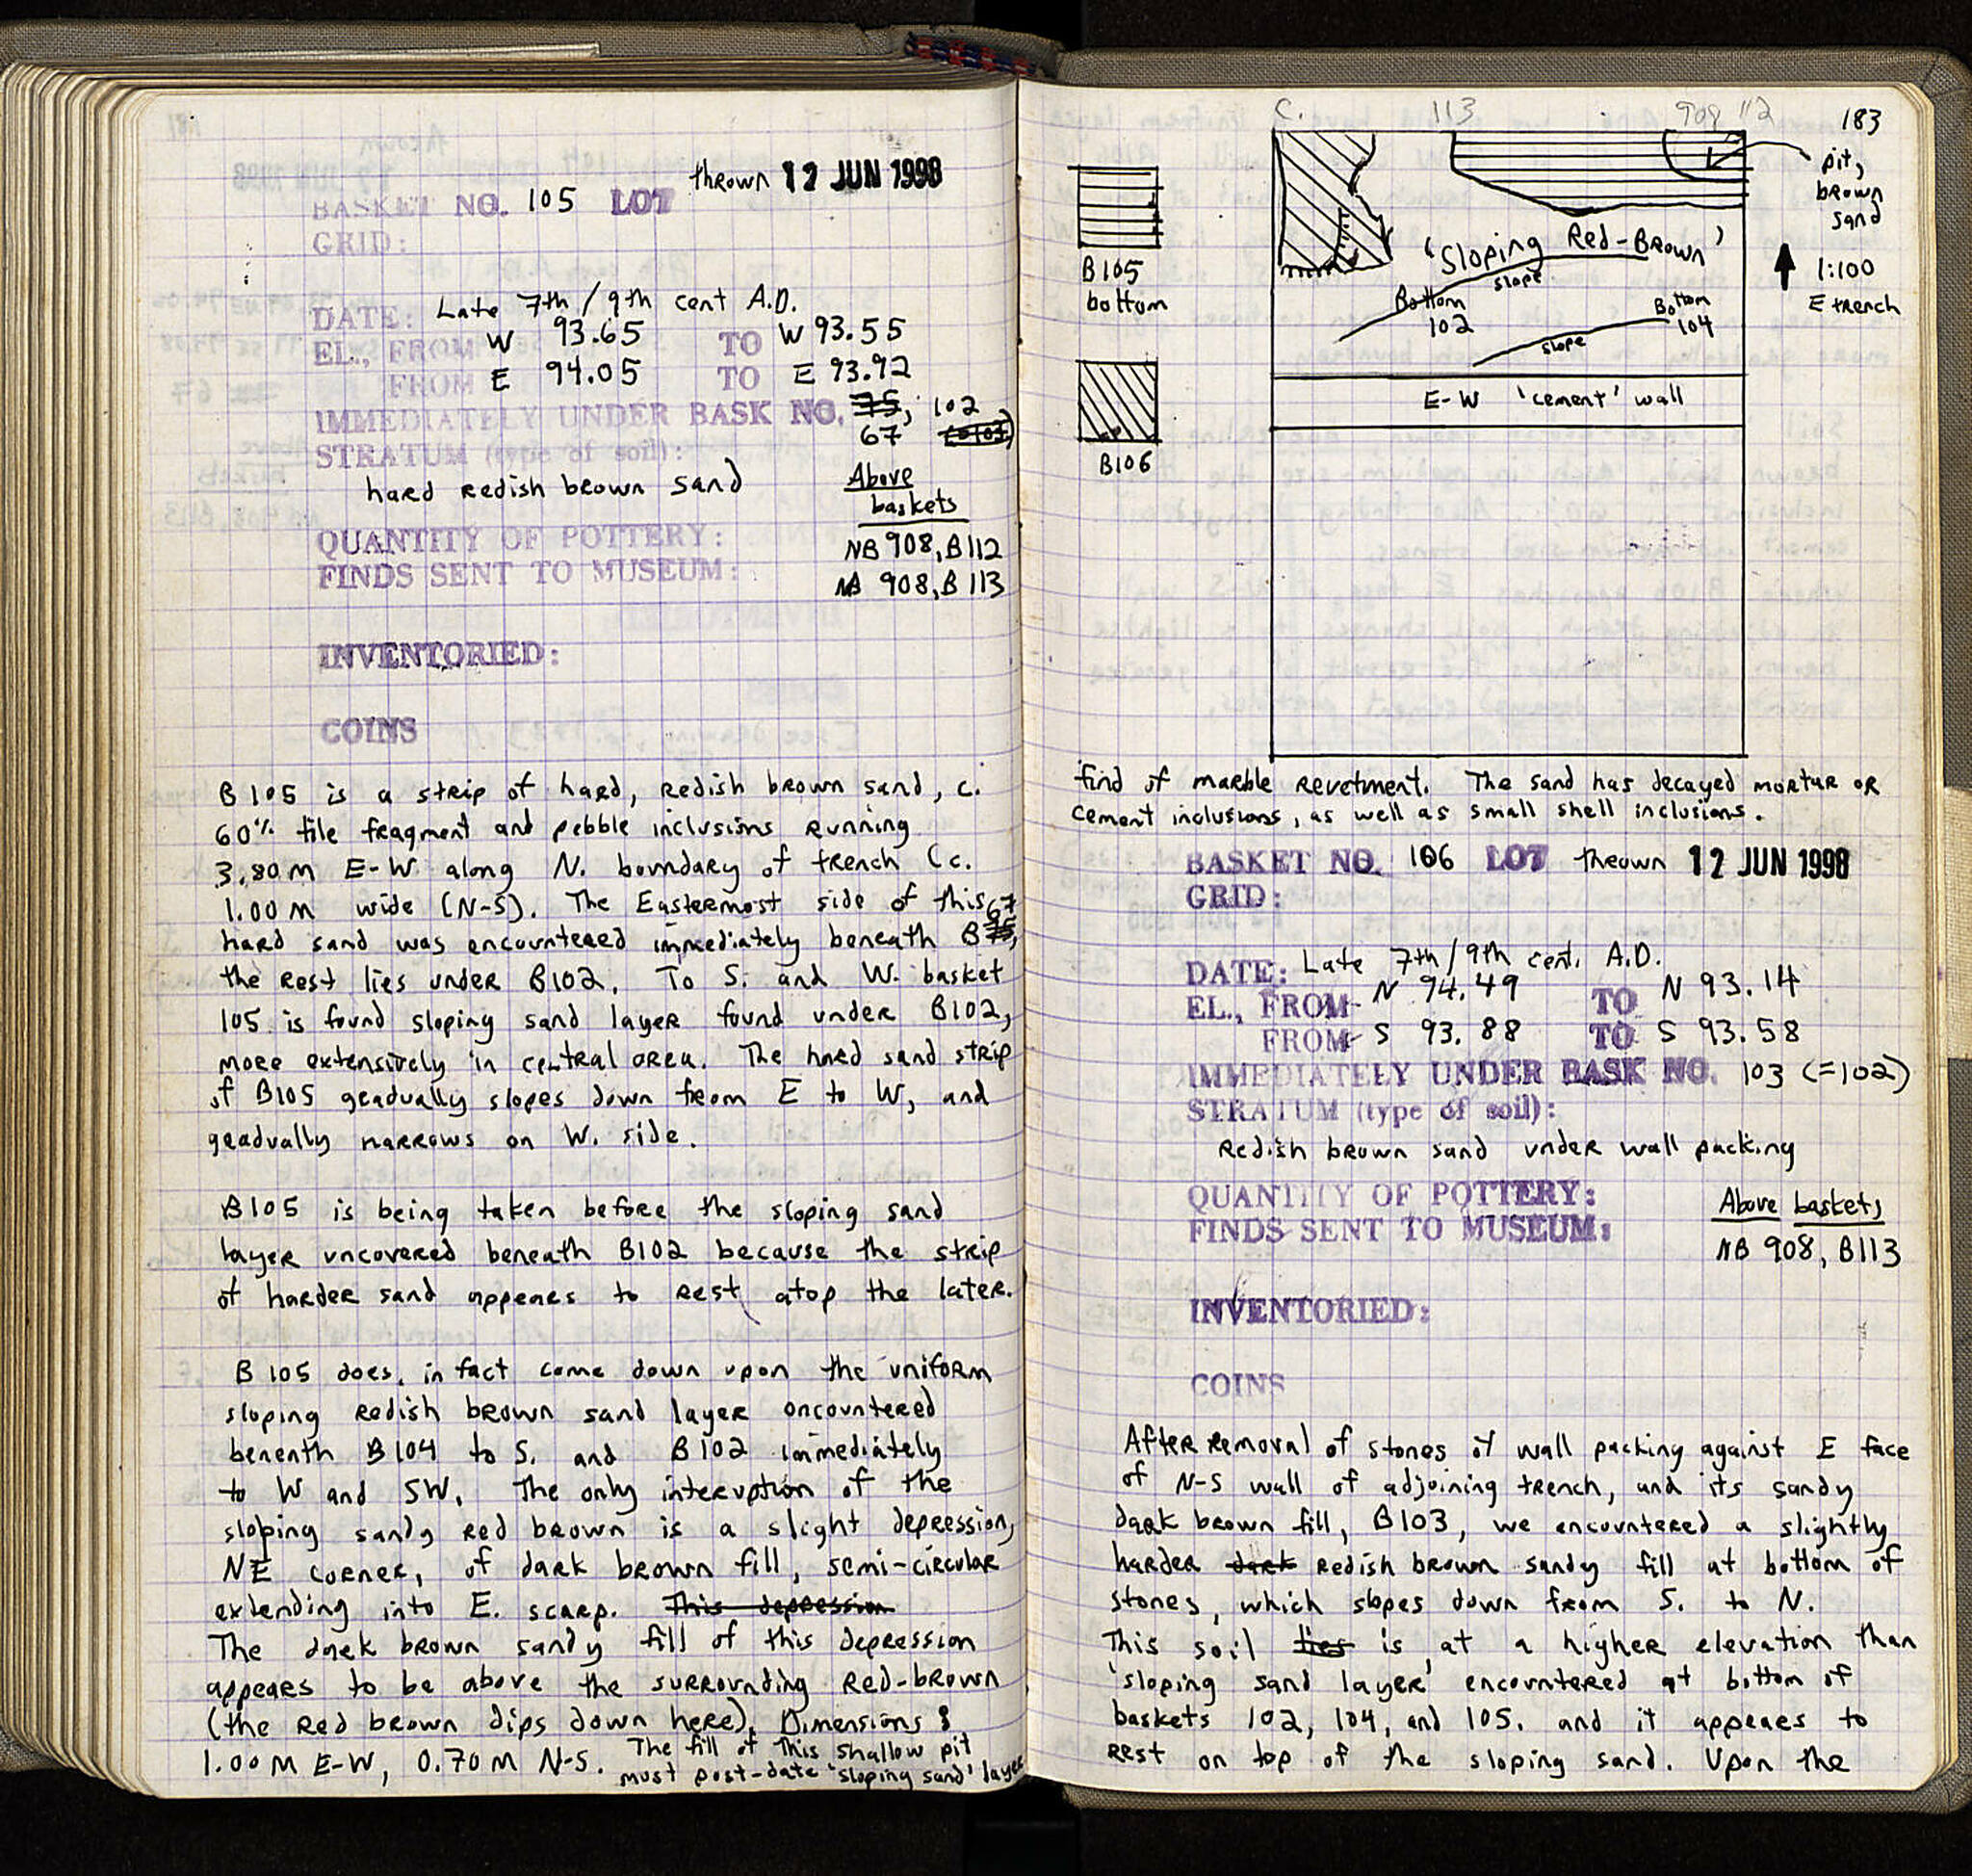 thrown 12 JUN 1998
BASKET NO. 105 LOT
GRID:
DATE: Late 7th/9th cent A.D.
EL., FROM W 93.65 TO W 93.55
FROM E 94.05 TO E 93.92
IMMEDIATELY UNDER BASK NO. 75, 102
67
STRATUM (type of soil):
hard redish brown sand
Above
baskets
QUANTITY OF POTTERY:
NB 908, B112
FINDS SENT TO MUSEUM:
NB 908, B113
INVENTORIED:
COINS
B105 is a strip of hard, redish brown sand, c.
60% tile fragment and pebble inclusions running
3.80m E-W along N. boundary of trench (c.
1.00 m wide (N-S). The Easternmost side of this
hard sand was encountered immediately beneath B 75, 67
the rest lies under B102. To S. and W. basket
105 is found sloping sand layer found under B102,
more extensively in central area. The hard sand strip
of B105 gradually slopes down from E to W, and
gradually narrows on W. side.
B105 is being taken before the sloping sand
layer uncovered beneath B102 because the strip
of harder sand appears to rest atop the later.
B105 does, in fact come down upon the uniform
sloping redish brown sand layer encountered
beneath B104 to S. and B102 immediately
to W and SW. The only interuption of the
sloping sandy red brown is a slight depression,
NE corner, of dark brown fill, semi-circular
extending into E. scarp. This depression
The dark brown sandy fill of this depression
appears to be above the surrounding red-brown
(the red brown dips down here). Dimensions:
1.00 m E-W, 0.70 m N-S. The fill of this shallow pit
must post-date 'sloping sand' layer
C. 113 908 112
183
pit,
brown
sand
B105
bottom
B106
'Sloping Red-Brown'
slope
Bottom
102
Bottom
104
slope
1:100
E trench
E-W 'cement' wall
find of marble revetment. The sand has decayed mortar or
cement inclusions, as well as small shell inclusions.
BASKET NO. 106 LOT thrown 12 JUN 1998
GRID:
DATE: Late 7th/9th cent. A.D.
EL., FROM N 94.49 TO N 93.14
FROM S 93.88 TO S 93.58
IMMEDIATELY UNDER BASK NO. 103 (=102)
STRATUM (type of soil):
Redish brown sand under wall packing
QUANTITY OF POTTERY:
Above baskets
FINDS SENT TO MUSEUM:
NB 908, B113
INVENTORIED:
COINS
After removal of stones of wall packing against E face
of N-S wall of adjoining trench, and its sandy
dark brown fill, B103, we encountered a slightly
harder dark redish brown sandy fill at bottom of
stones, which slopes down from S. to N.
This soil lies is at a higher elevation than
'sloping sand layer' encountered at bottom of
baskets 102, 104, and 105. and it appears to
rest on top of the sloping sand. Upon the